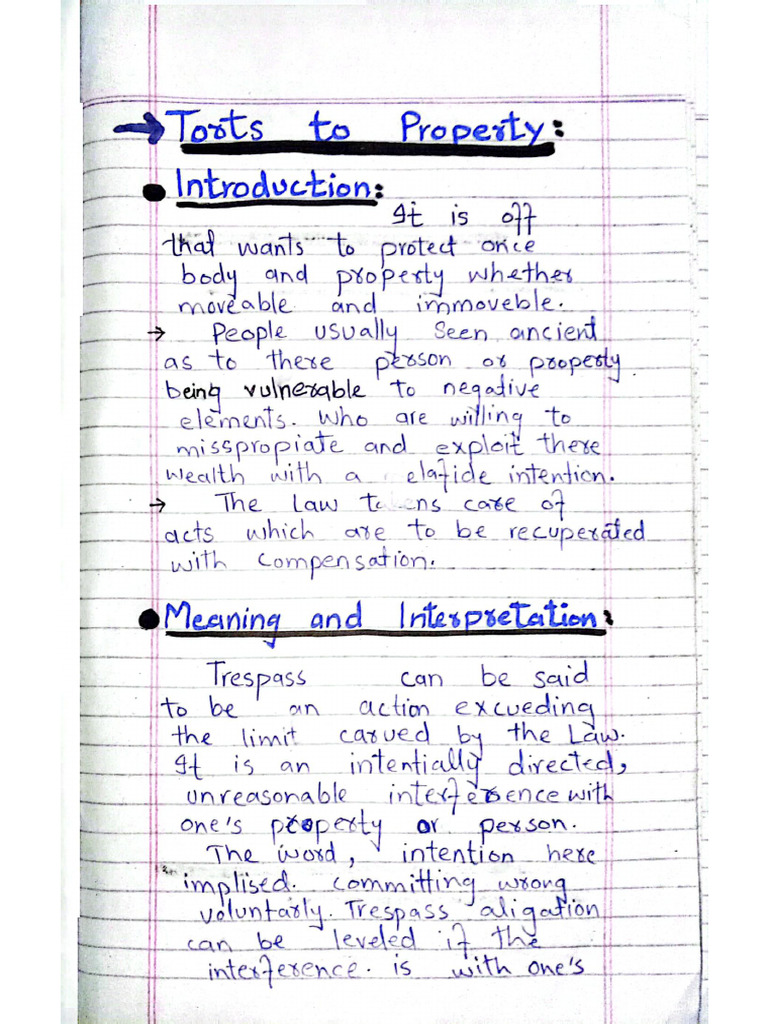 → Torts to Property:
• Introduction:
It is off
that wants to protect once
body and property whether
moveable and immoveble.
→ People usually seen ancient
as to there person or property
being vulnerable to negative
elements. who are willing to
misspropiate and exploit there
wealth with a elafide intention.
→ The law ens care of
acts which are to be recuperated
with compensation.
• Meaning and Interpretation:
Trespass can be said
to be an action excueding
the limit carved by the Law.
It is an intentially directed,
unreasonable interference with
one's property or person.
The word, intention here
implised. committing wrong
voluntarly. Trespass aligation
can be leveled if the
interference. is with one's